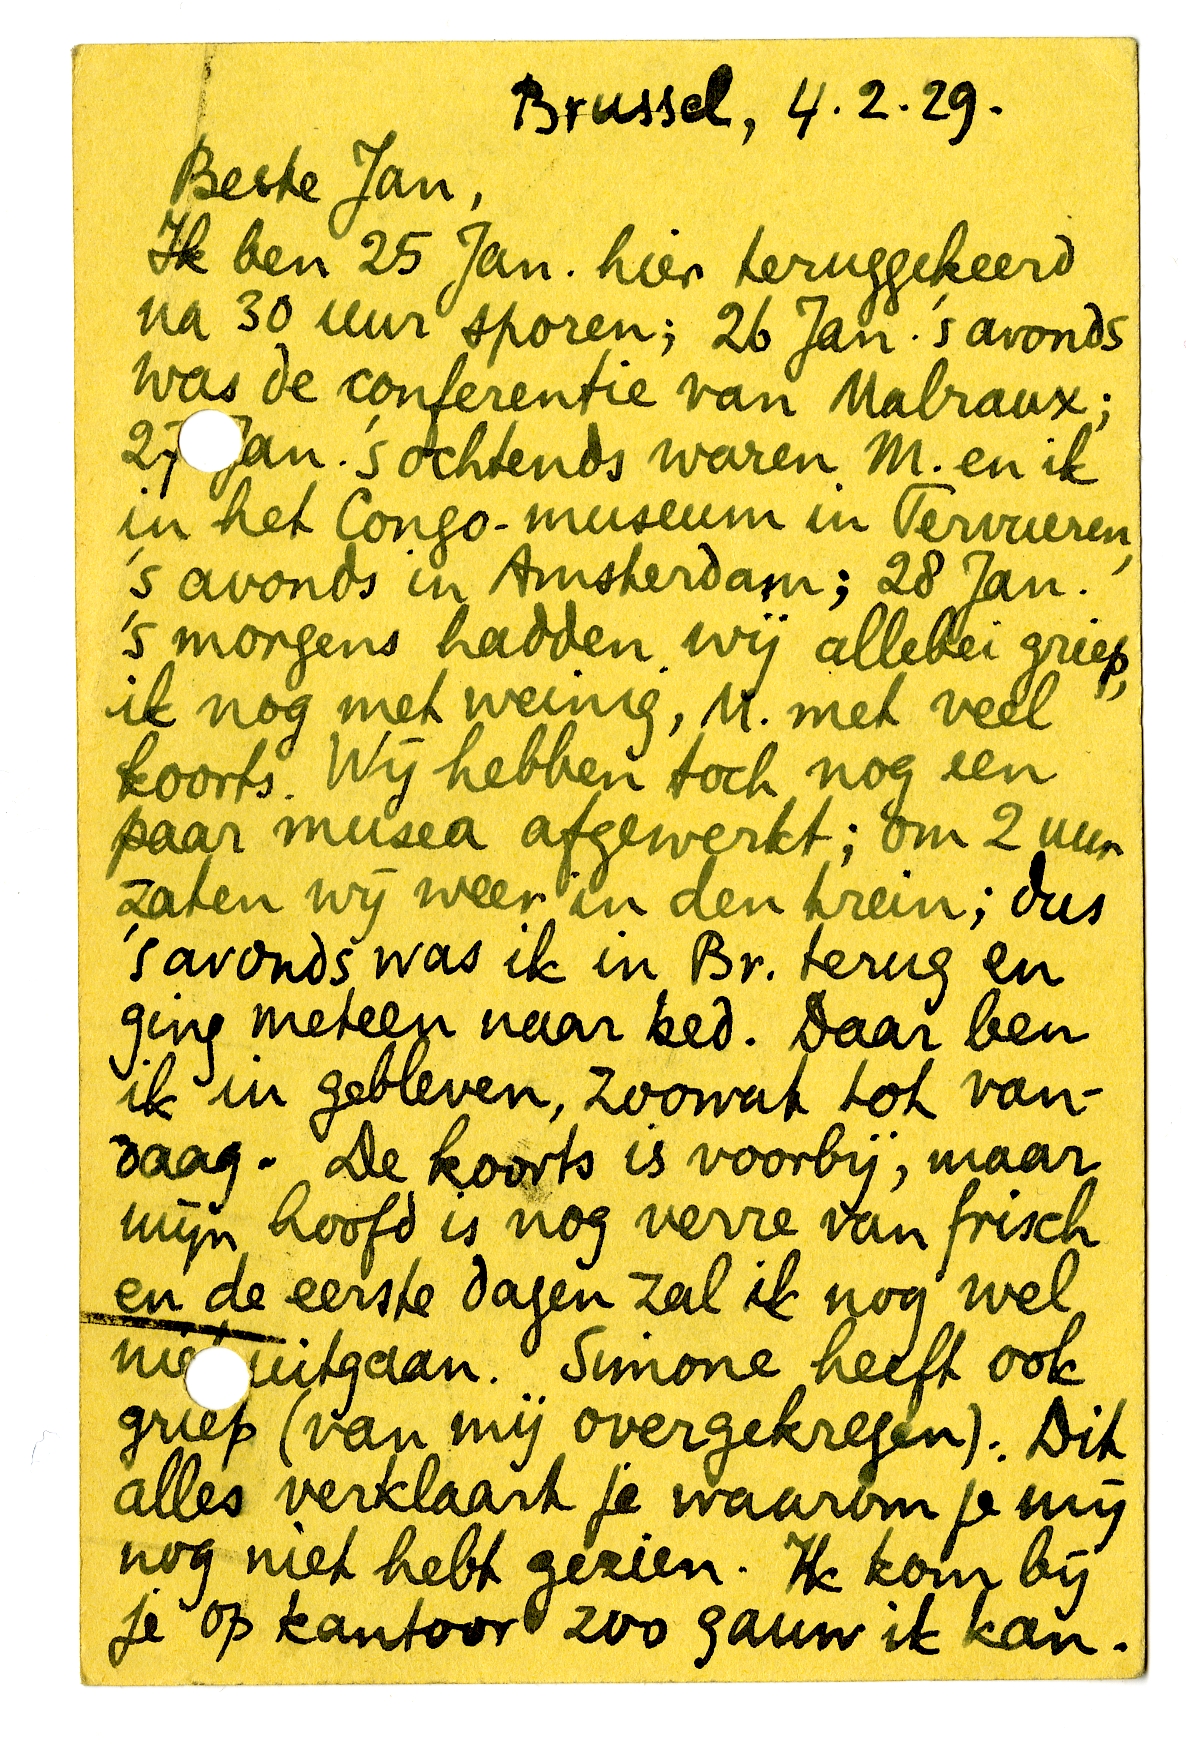 Brussel, 4.2.29.
Beste Jan,
Ik ben 25 Jan. hier teruggekeerd
na 30 uur sporen; 26 Jan. 's avonds
was de conferentie van Malraux;
27 Jan. 's ochtends waren M. en ik
in het Congo-museum in Tervueren,
's avonds in Amsterdam; 28 Jan.
's morgens hadden wij allebei griep,
ik nog met weinig, M. met veel
koorts. Wij hebben toch nog een
paar musea afgewerkt; om 2 uur
zaten wij weer in den trein; dus
's avonds was ik in Br. terug en
ging meteen naar bed. Daar ben
ik in gebleven, zoowat tot van-
daag. De koorts is voorbij, maar
mijn hoofd is nog verre van frisch
en de eerste dagen zal ik nog wel
niet uitgaan. Simone heeft ook
griep (van mij overgekregen). Dit
alles verklaart je waarom je mij
nog niet hebt gezien. Ik kom bij
je op kantoor zoo gauw ik kan.